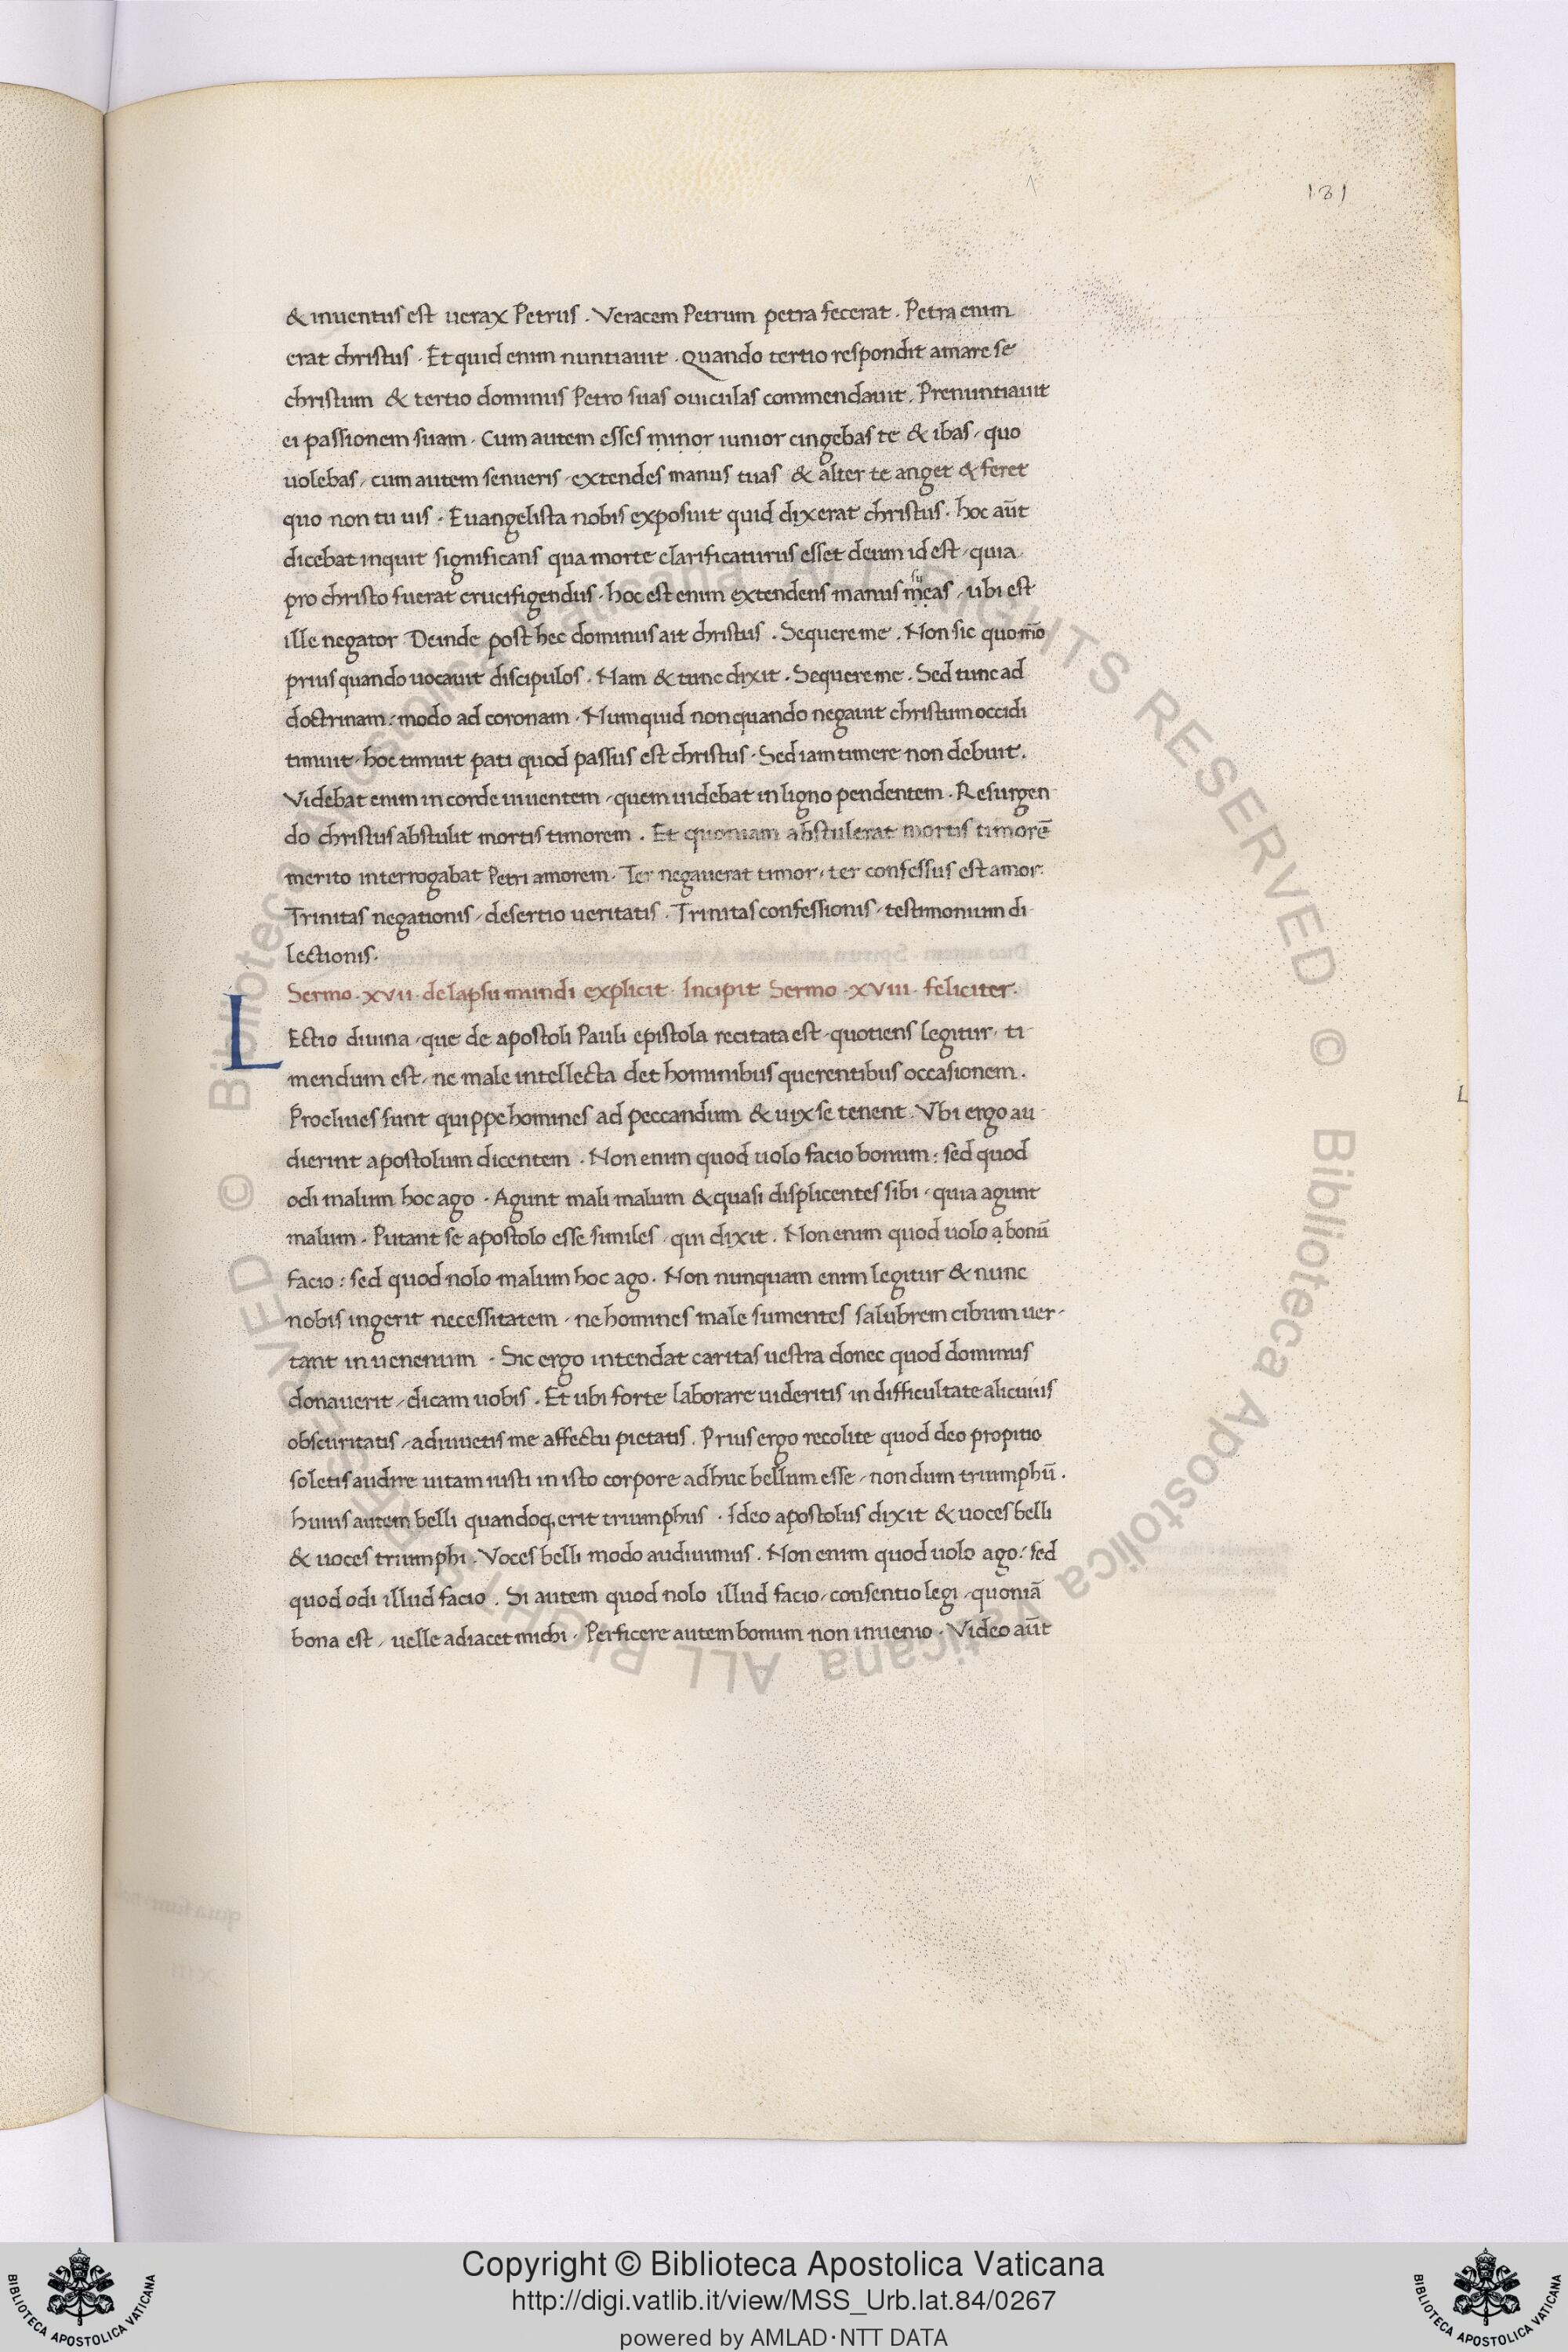 131
& inuentus est uerax Petrus . Veracem Petrum petra fecerat . Petra enim
erat christus . Et quid enim nuntiauit . Quando tertio respondit amare se
christum & tertio dominus Petro suas ouiculas commendauit . Prenuntiauit
ei passionem suam . Cum autem esses minor iunior cingebas te & ibas / quo
uolebas / cum autem senueris / extendes manus tuas & alter te anget & feret
quo non tu uis . Euangelista nobis exposuit quid dixerat christus . hoc aūt
dicebat inquit significans qua morte clarificaturus esset deum id est / quia
pro christo fuerat crucifigendus . hoc est enim extendens manus meas / ubi est
ille negator Deinde post hec dominus ait christus . Sequere me . Non sic quomō
prius quando uocauit discipulos . Nam & tunc dixit . Sequere me . Sed tunc ad
doctrinam : modo ad coronam . Numquid non quando negauit christum occidi
timuit . hoc timuit pati quod passus est christus . Sed iam timere non debuit .
Videbat enim in corde inuentem / quem uidebat in ligno pendentem . Resurgen
do christus abstulit mortis timorem . Et quoniam abstulerat mortis timorē
merito interrogabat Petri amorem . Ter negauerat timor / ter confessus est amor .
Trinitas negationis / desertio ueritatis . Trinitas confessionis / testimonium di
lectionis .
Sermo . xvii . de lapsu mundi explicit . Incipit Sermo . xviii . feliciter .
LEctio diuina / que de apostoli Pauli epistola recitata est / quotiens legitur / ti
mendum est / ne male intellecta det hominibus querentibus occasionem .
Procliues sunt quippe homines ad peccandum & uix se tenent . Vbi ergo au
dierint apostolum dicentem . Non enim quod uolo facio bonum : sed quod
odi malum hoc ago . Agunt mali malum & quasi displicentes sibi / quia agunt
malum . Putant se apostolo esse similes / qui dixit . Non enim quod uolo a bonū
facio : sed quod nolo malum hoc ago . Non nunquam enim legitur & nunc
nobis ingerit necessitatem / ne homines male sumentes salubrem cibum uer-
tant in uenenum . Sic ergo intendat caritas uestra donec quod dominus
donauerit / dicam uobis . Et ubi forte laborare uideritis in difficultate alicuius
obscuritatis / adiuuetis me affectu pietatis . Prius ergo recolite quod deo propitio
soletis audire uitam iusti in isto corpore adhuc bellum esse / non dum triumphū .
huius autem belli quandoq; erit triumphus . Ideo apostolus dixit & uoces belli
& uoces triumphi . Voces belli modo audiuimus . Non enim quod uolo ago : sed
quod odi illud facio . Si autem quod nolo illud facio / consentio legi / quoniā
bona est / uelle adiacet michi . Perficere autem bonum non inuenio . Video aūt
Copyright © Biblioteca Apostolica Vaticana
http://digi.vatlib.it/view/MSS_Urb.lat.84/0267
powered by AMLAD·NTT DATA
BIBLIOTECA APOSTOLICA VATICANA
BIBLIOTECA APOSTOLICA VATICANA